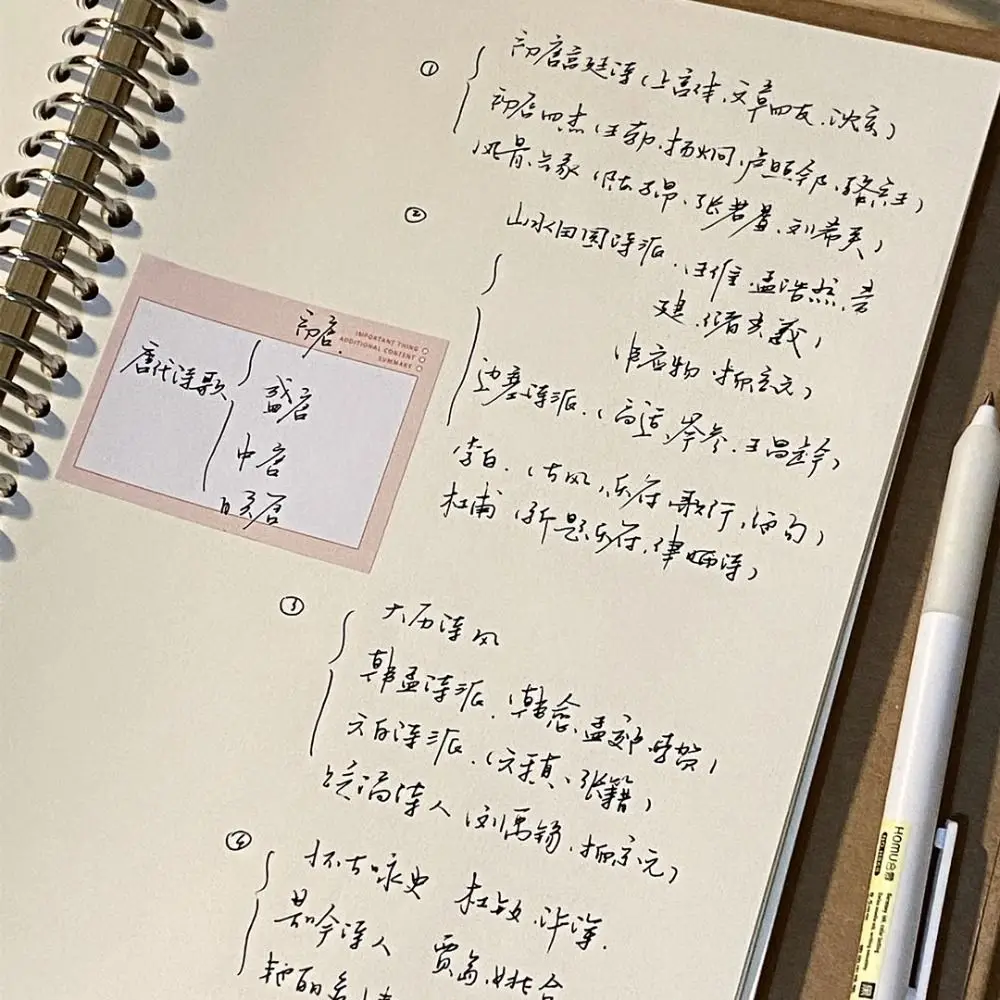 ①
初唐宫廷诗（上宫体，文章四友，沈宋）
初唐四杰（王勃，杨炯，卢照邻，骆宾王）
风骨，兴象（陈子昂，张若虚，刘希夷）
②
山水田园诗派，（王维，孟浩然，常
建，储光羲）
边塞诗派，（高适，岑参，王昌龄）
李白，（古风，乐府，歌行，绝句）
杜甫（新题乐府，律诗）
IMPORTANT THING
ADDITIONAL CONTENT
SUMMARY
唐代诗歌
初唐
盛唐
中唐
晚唐
③
大历诗风
韩孟诗派，（韩愈，孟郊，李贺）
元白诗派，（元稹、张籍）
贬谪诗人（刘禹锡，柳宗元）
④
怀古咏史 杜牧，许浑
苦吟诗人 贾岛，姚合
艳丽
HOMU